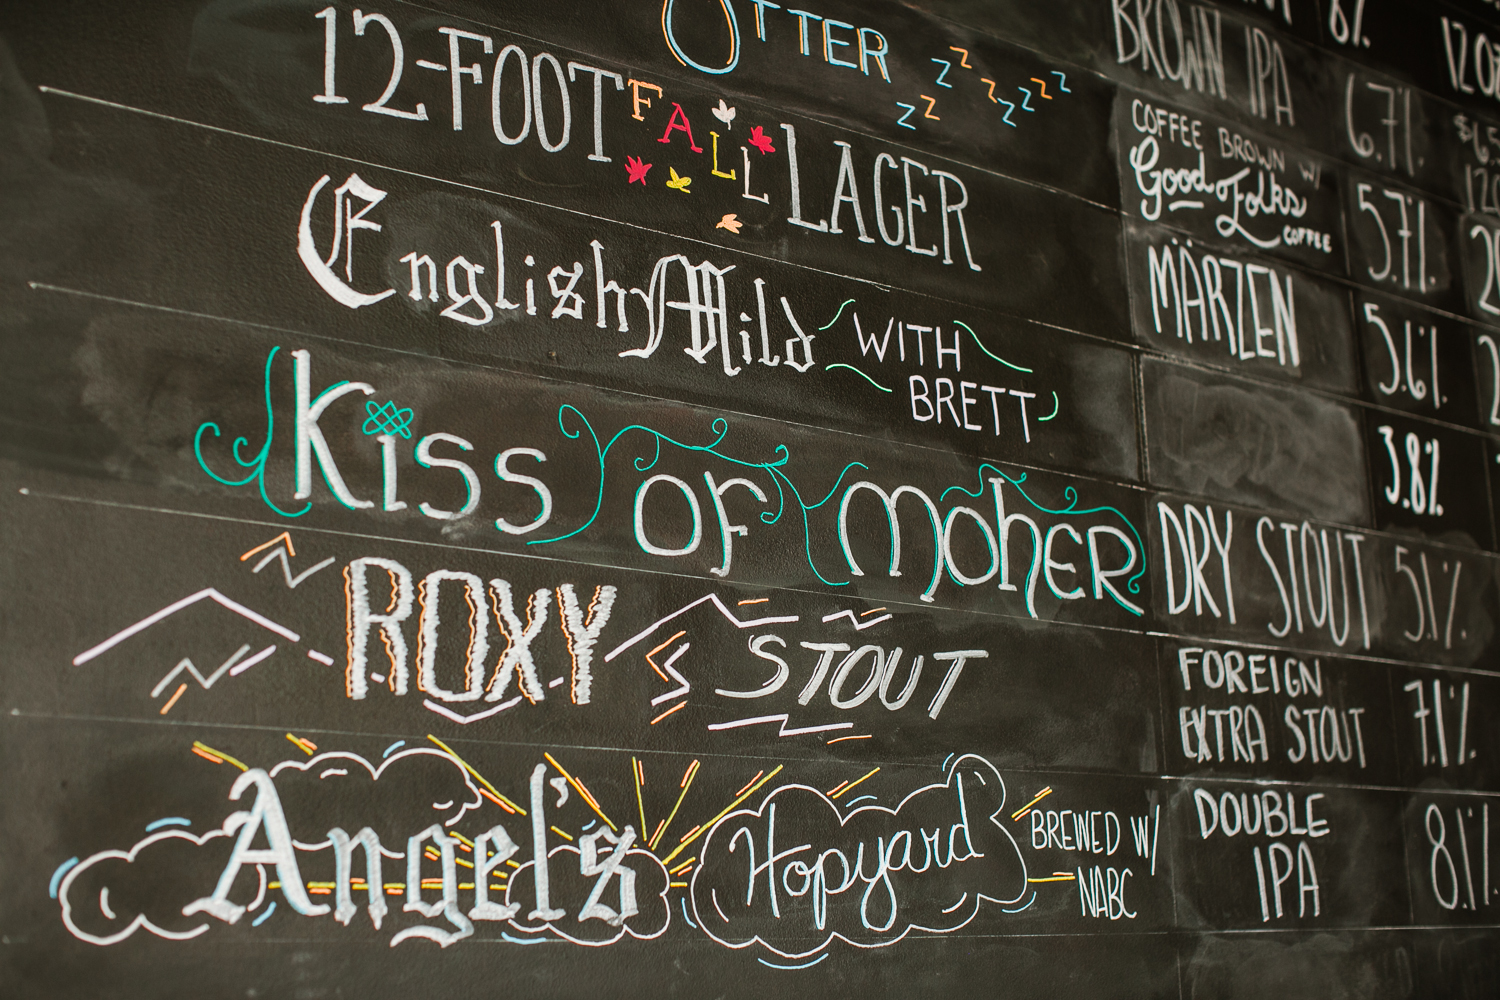 OTTER ZZ ZZZZZZ
BROWN IPA 6.7%
12-FOOT FALL LAGER
COFFEE BROWN W/
Good Folks
COFFEE
5.7%
MÄRZEN 5.6%
English Mild WITH
BRETT
3.8%
Kiss OF MOHER
DRY STOUT 5.1%
ROXY STOUT
FOREIGN
EXTRA STOUT
7.1%
Angel's Hopyard
BREWED W/
NABC
DOUBLE
IPA
8.1%